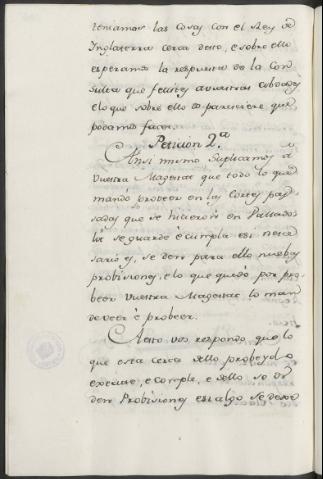 teniamos las cosas con el Rey de
Inglaterra cerca desto, e sobre ello
esperamos la respuesta de la Con
sulta que fecistes a vuestras cibdades
e lo que sobre ello os pareciere que
podamos facer.
Peticion 2.ª
Ansi mismo suplicamos á
vuestra Magestat que todo lo que
mandó proveer en las Cortes pas
sadas que se hicieron en Vallado
lid se guarde é cumpla si es nece
sario, e se den para ello nuebas
probisiones, e lo que quedó por pro
beer vuestra Magestat lo man
de veer é probeer.
A esto vos respondo, que lo
que esta cerca dello probeydo
execute, e cumpla, e dello se os
den Probisiones, e si algo se dexó